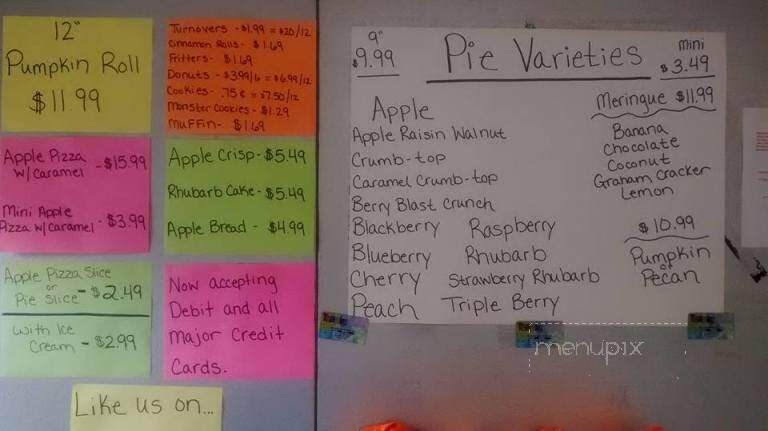 12"
Pumpkin Roll
$11.99
Turnovers - $1.99 = $20/12
Cinnamon Rolls - $1.69
Fritters - $1.69
Donuts - $3.99/6 = $6.99/12
Cookies - .75¢ = $7.50/12
Monster Cookies - $1.29
Muffin - $1.69
Apple Pizza
w/ Caramel - $15.99
Mini Apple
Pizza w/ Caramel - $3.99
Apple Crisp - $5.49
Rhubarb Cake - $5.49
Apple Bread - $4.99
Apple Pizza Slice
or
Pie Slice - $2.49
with Ice
Cream - $2.99
Now accepting
Debit and all
Major Credit
Cards.
Like us on...
9"
$9.99
Pie Varieties
mini
$3.49
Apple
Apple Raisin Walnut
Crumb-top
Caramel Crumb-top
Berry Blast Crunch
Blackberry Raspberry
Blueberry Rhubarb
Cherry Strawberry Rhubarb
Peach Triple Berry
Meringue $11.99
Banana
Chocolate
Coconut
Graham Cracker
Lemon
$10.99
Pumpkin
or
Pecan
menupix